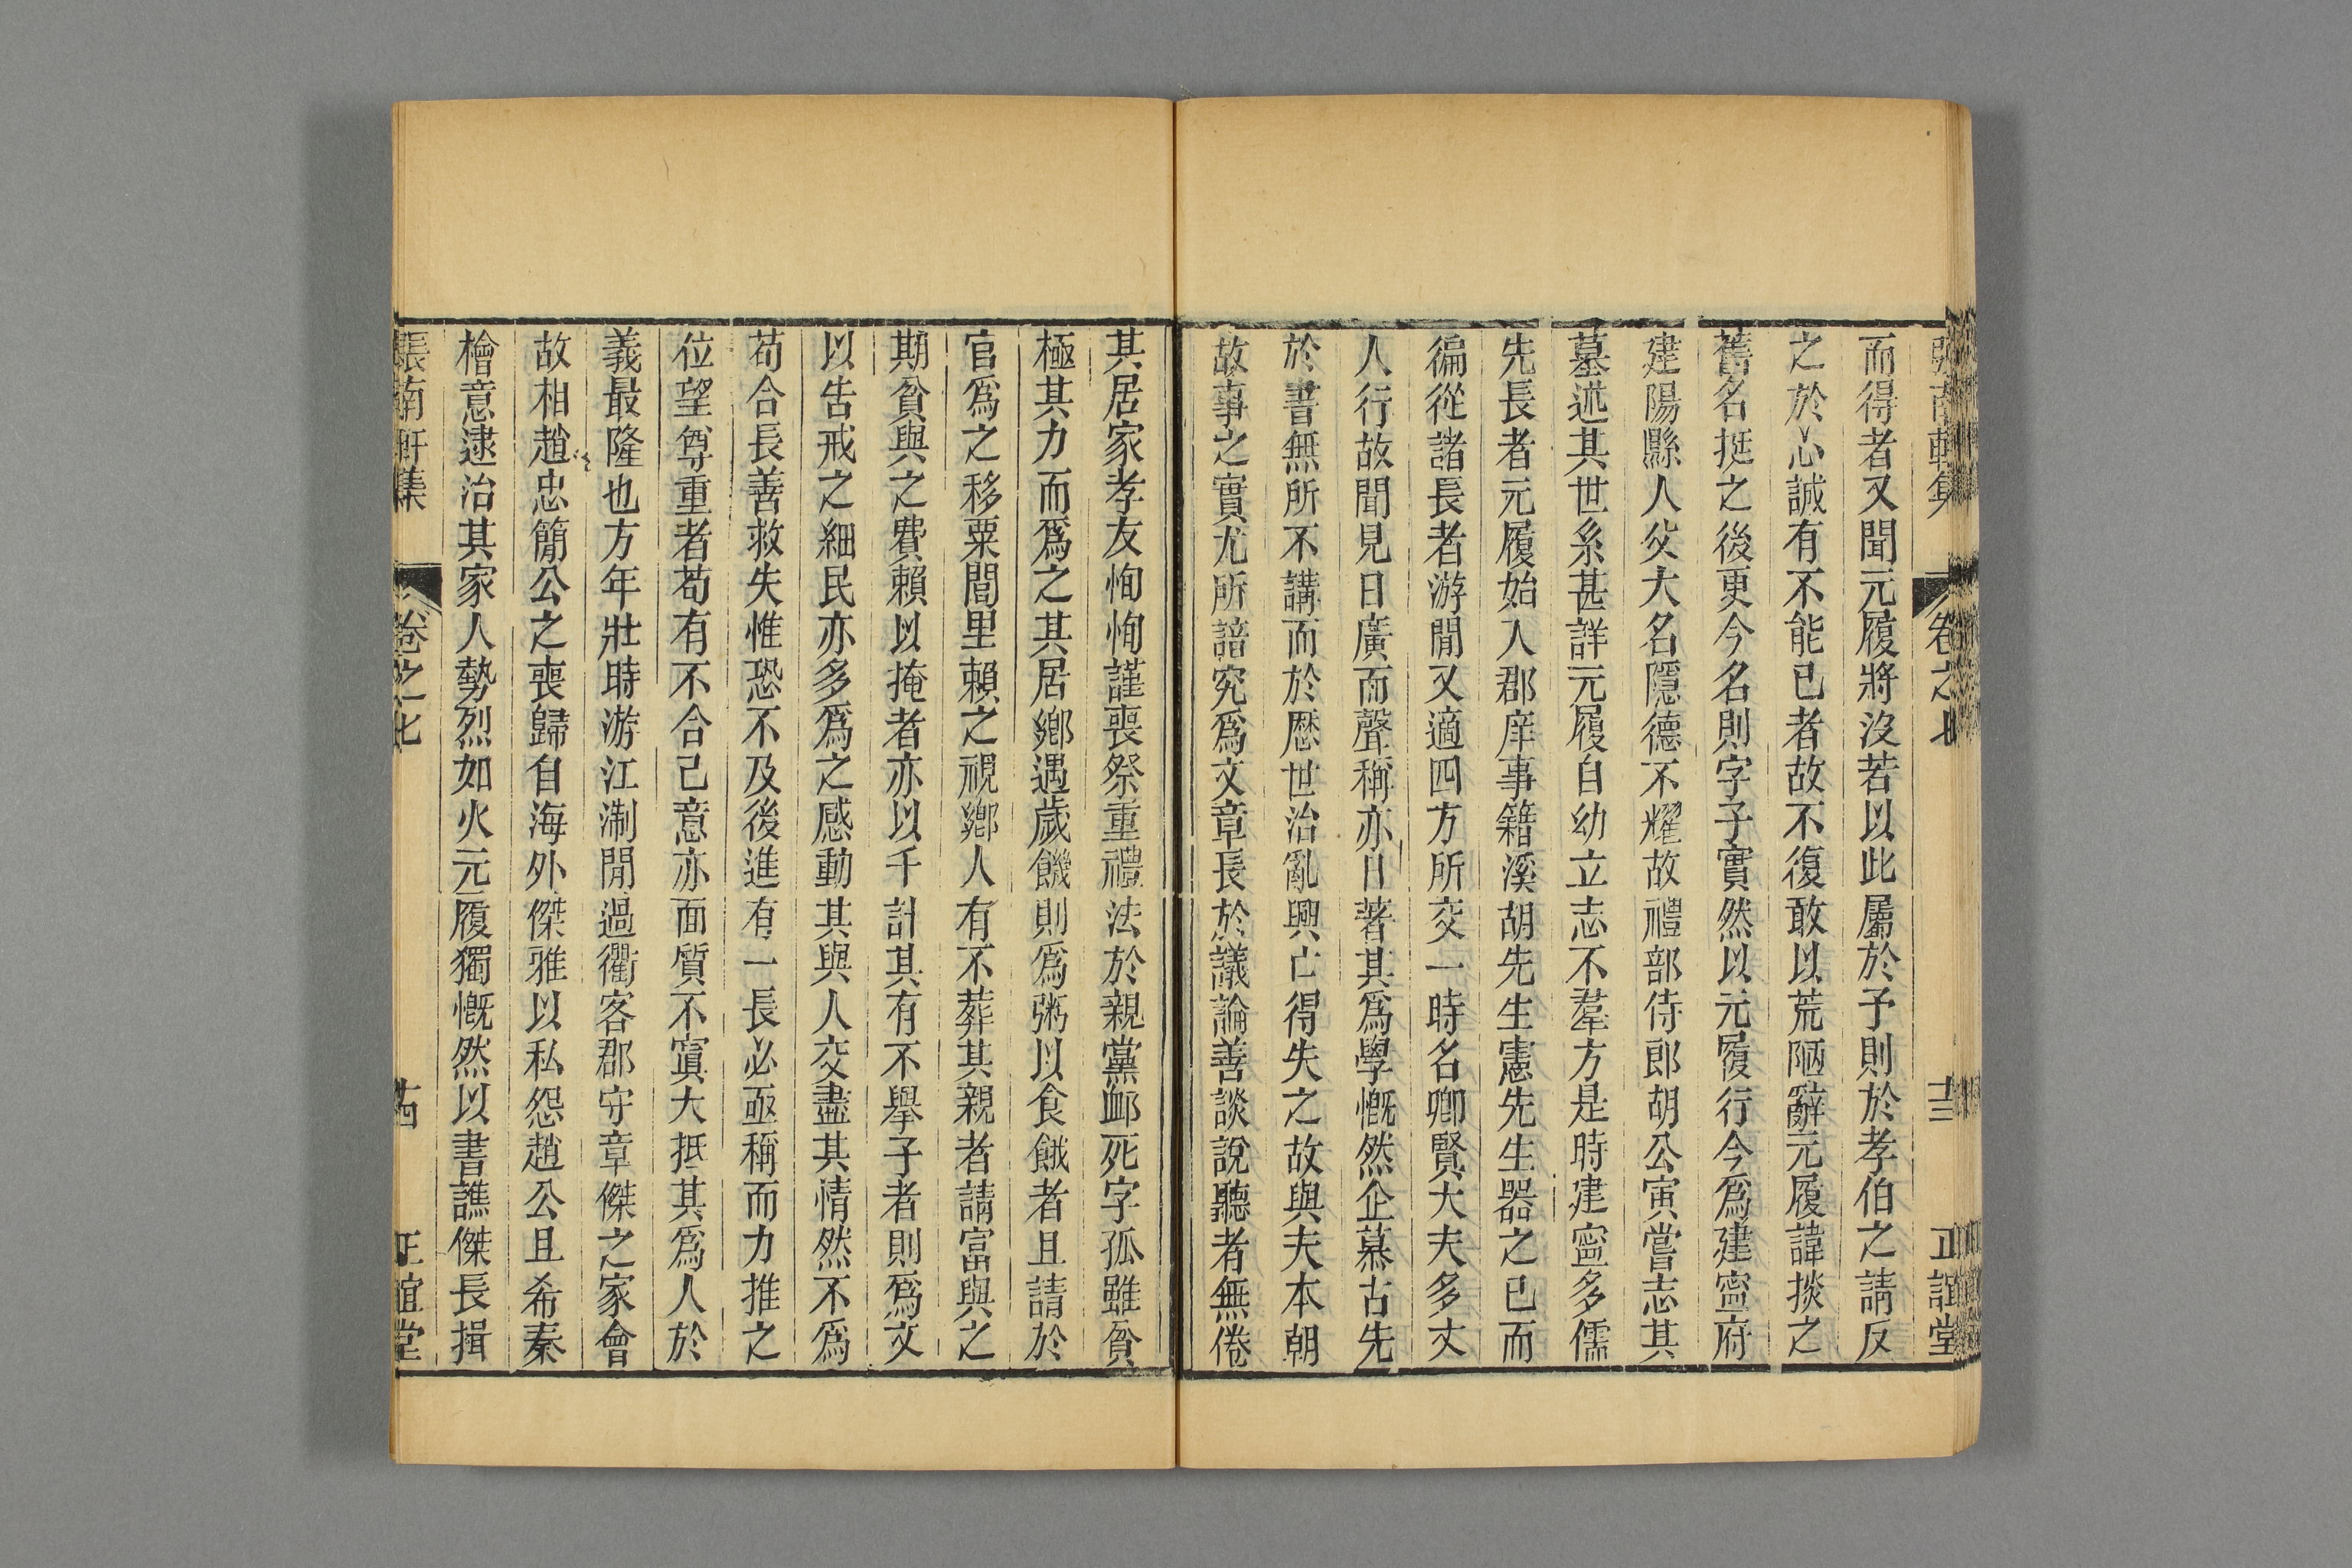 張南軒集 卷之七 十三 正誼堂
而得者又聞元履將沒若以此屬於予則於孝伯之請反
之於心誠有不能已者故不復敢以荒陋辭元履諱掞之
舊名挺之後更今名則字子實然以元履行今爲建寧府
建陽縣人父大名隱德不耀故禮部侍郎胡公寅嘗志其
墓述其世系甚詳元履自幼立志不羣方是時建寧多儒
先長者元履始入郡庠事籍溪胡先生憲先生器之已而
徧從諸長者游閒又適四方所交一時名卿賢大夫多丈
人行故聞見日廣而聲稱亦日著其爲學慨然企慕古先
於書無所不講而於歷世治亂興亡得失之故與夫本朝
故事之實尤所諳究爲文章長於議論善談說聽者無倦
其居家孝友恂恂謹喪祭重禮法於親黨卹死字孤雖貧
極其力而爲之其居鄉遇歲饑則爲粥以食餓者且請於
官爲之移粟閭里賴之視鄉人有不葬其親者請富與之
期貧與之費賴以掩者亦以千計其有不舉子者則爲文
以告戒之細民亦多爲之感動其與人交盡其情然不爲
苟合長善救失惟恐不及後進有一長必亟稱而力推之
位望尊重者苟有不合己意亦面質不寘大抵其爲人於
義最隆也方年壯時游江淛閒過衢客郡守章傑之家會
故相趙忠簡公之喪歸自海外傑雅以私怨趙公且希秦
檜意逮治其家人勢烈如火元履獨慨然以書譙傑長揖
張南軒集 卷之七 十四 正誼堂